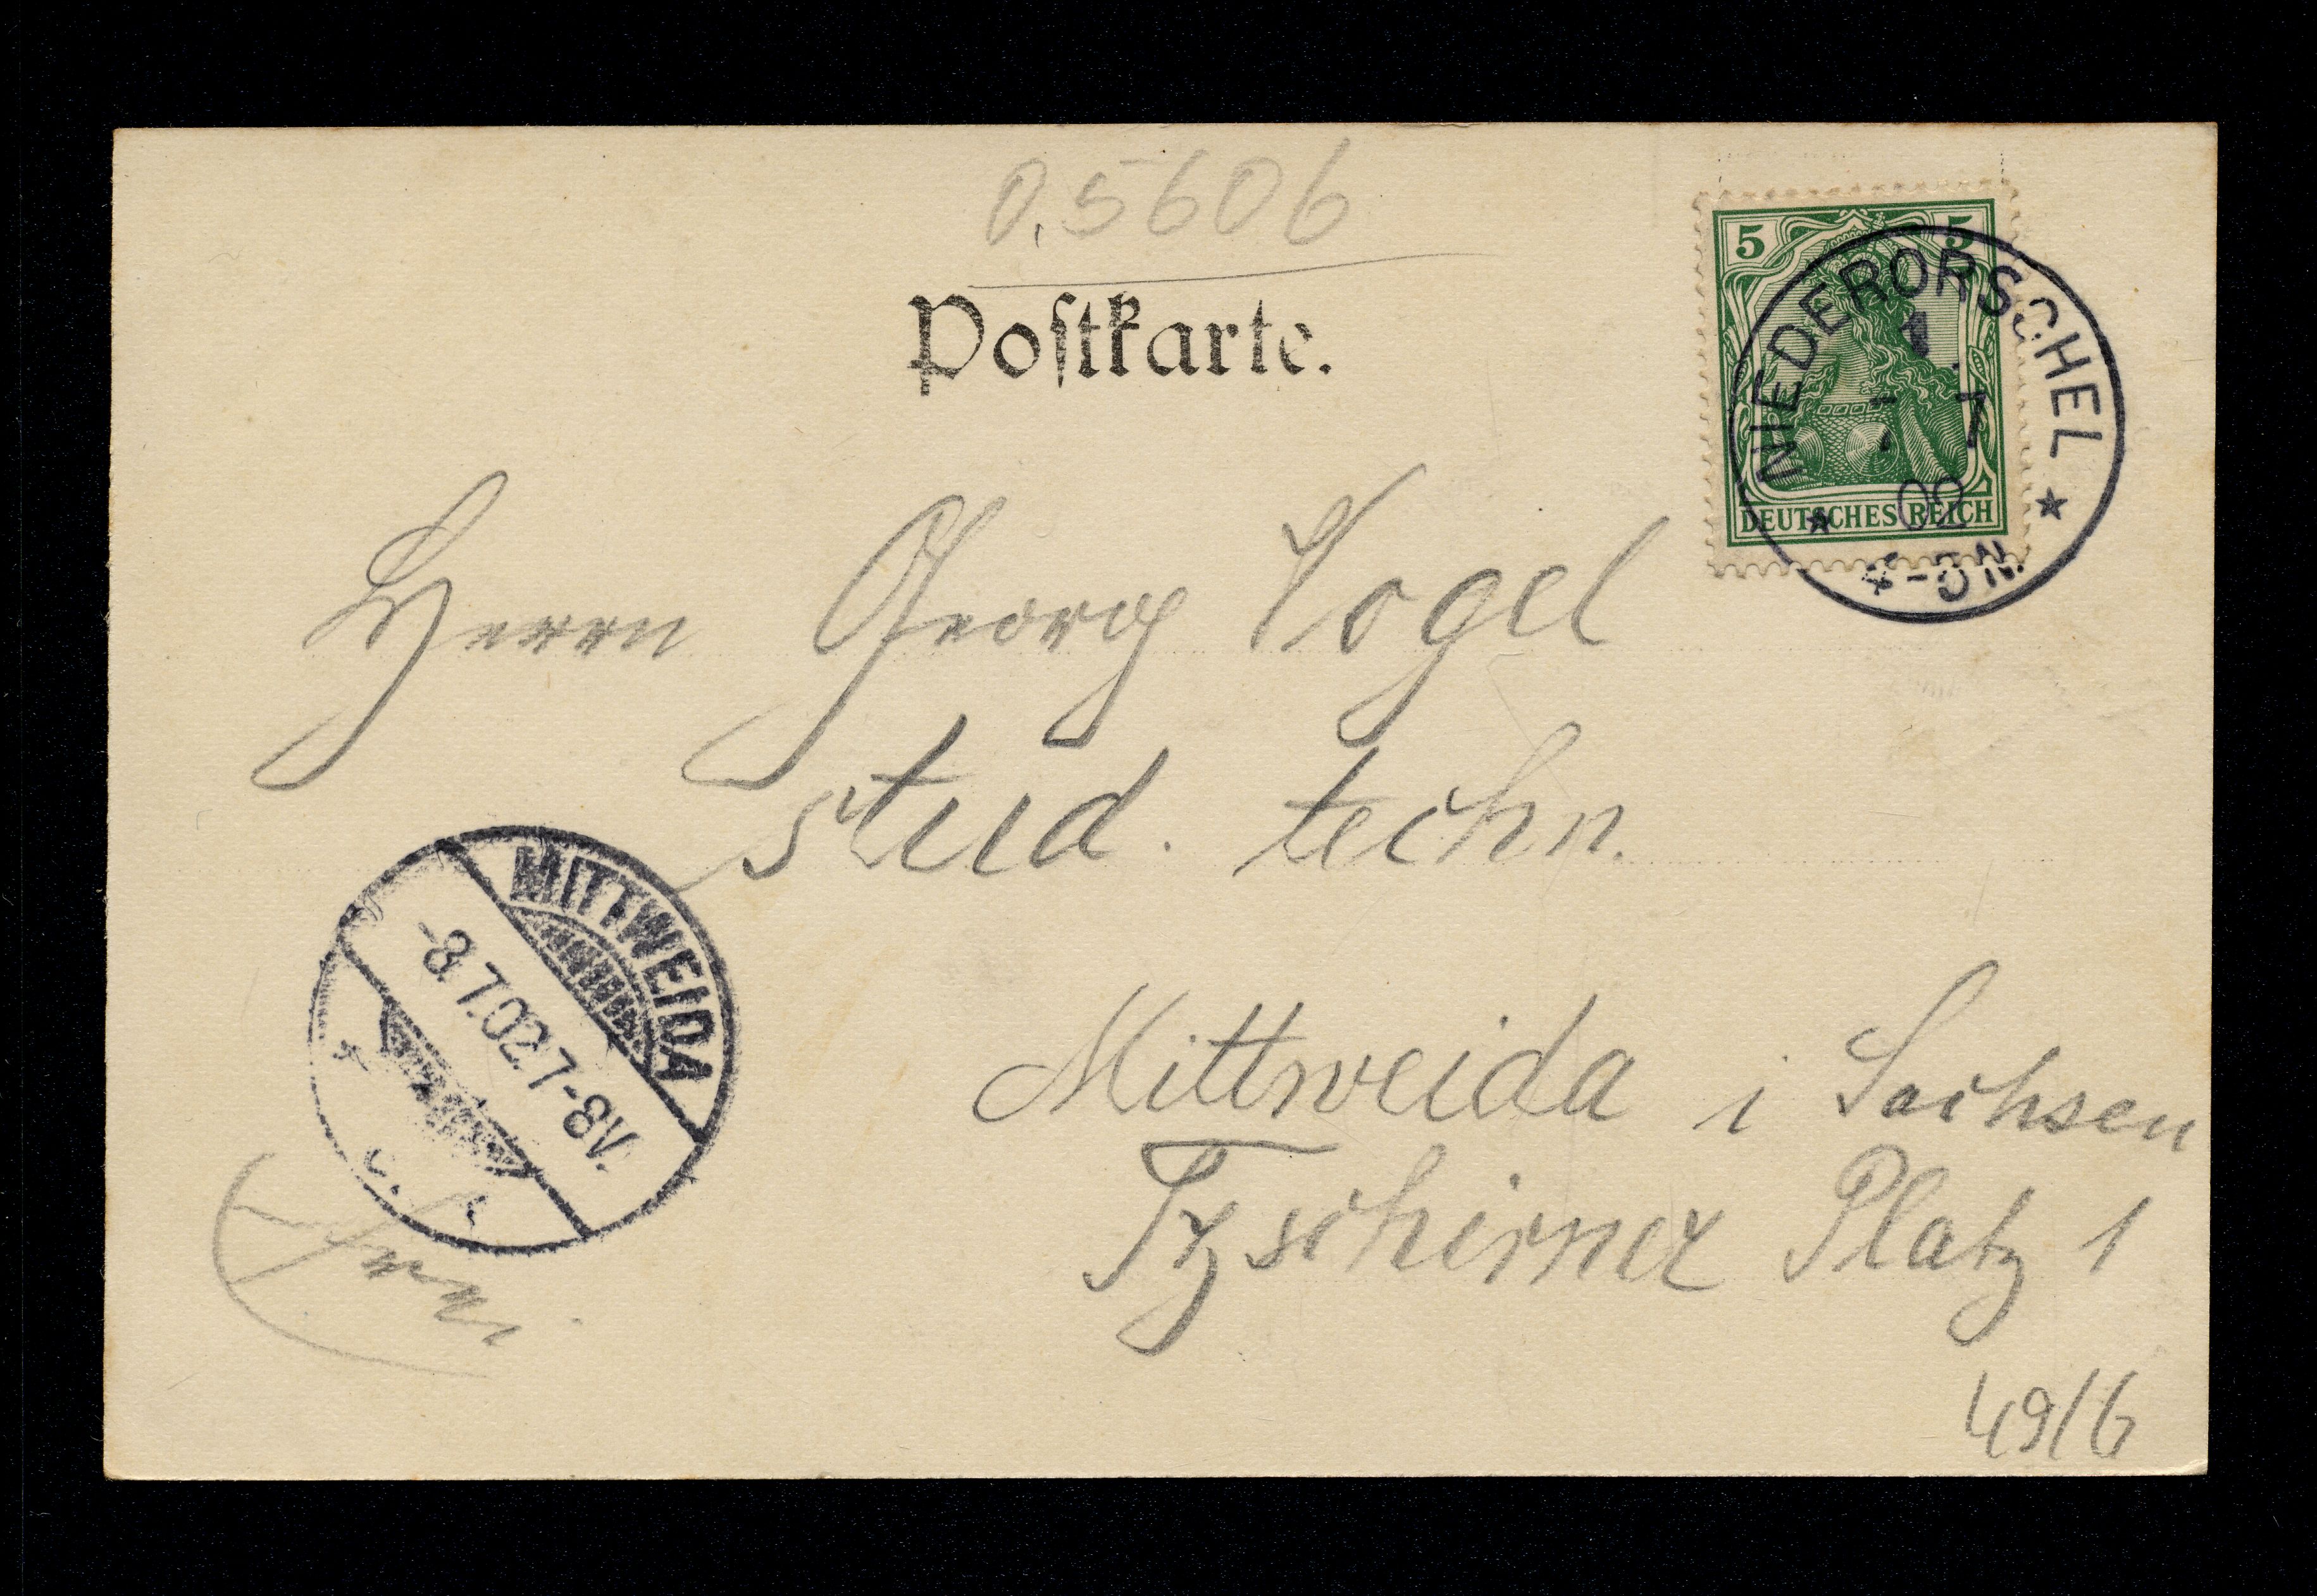 0.5606
Postkarte.
5 5
DEUTSCHES REICH
NIEDERORSCHEL
7 7
02
* *
*-5N.
Herrn Georg Vogel
stud. techn.
MITTWEIDA
-8.7.02.7-8V.
Mittweida i Sachsen
Tzschirner Platz 1
49/6